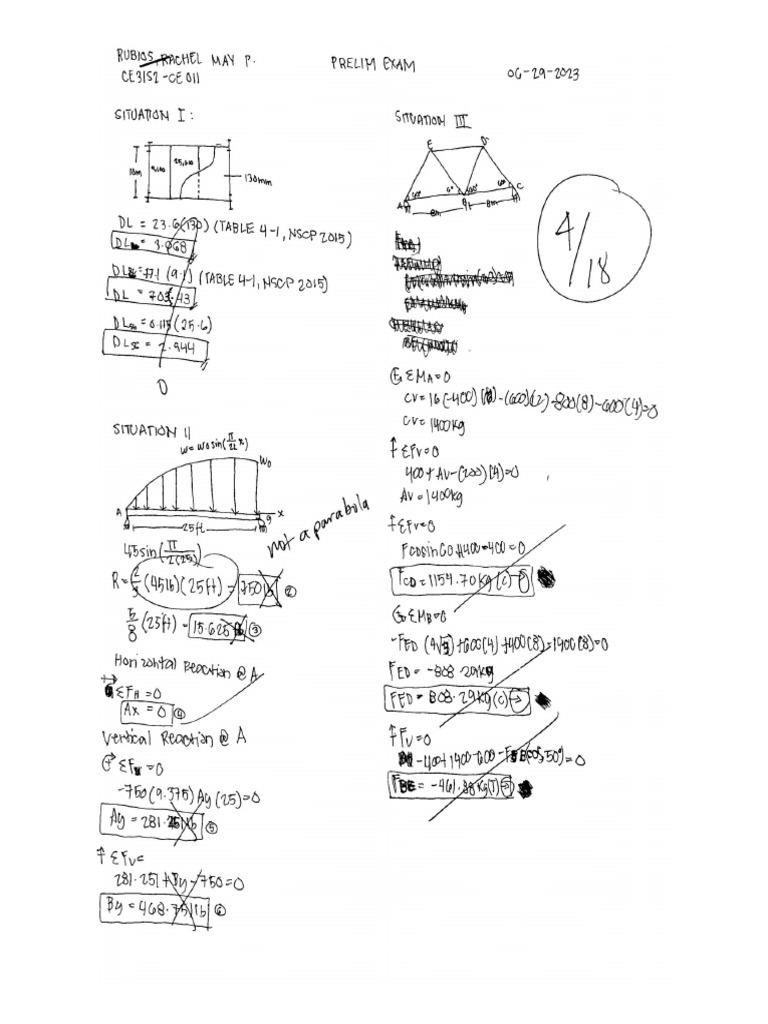 RUBIOS, RACHEL MAY P.
CE31S2-CE011
PRELIM EXAM
06-29-2023
SITUATION I:
10m
9,100
25,600
130mm
DL = 23.6(130) (TABLE 4-1, NSCP 2015)
DL = 3.068
DL = 77.1 (9.1) (TABLE 4-1, NSCP 2015)
DL = 703.43
DL = 0.115(25.6)
DL = 2.944
0
SITUATION II
W = wo sin(π/2L x)
Wo
A
B
x
25ft
not a parabola
45sin(π/2(25))
R = 2/3 (45lb)(25ft) = 750 lb ②
5/8 (25ft) = 15.625 ft ③
Horizontal Reaction @ A
ΣFH = 0
Ax = 0 ④
Vertical Reaction @ A
-750(9.375) Ay(25) = 0
Ay = 281.25 lb ⑤
↑ ΣFv =
281.251 + By - 750 = 0
By = 468.75 lb ⑥
SITUATION III
E
D
A
B
C
60°
60°
60°
8m
8m
4/18
ΣMA = 0
CV = 16(-400) - (600)(12) - 800(8) - 600(4) = 0
CV = 1400kg
↑ ΣFV = 0
400 + AV - (200)(4) = 0
AV = 1400kg
↑ ΣFV = 0
FCDsin60 + 1400 - 400 = 0
FCD = 1154.70 kg (C)
ΣMB = 0
-FED (4√3) + 600(4) + 400(8) = 1400(8) = 0
FED = -808.29kg
FED = 808.29kg (C)
↑ FV = 0
FBE = -461.88 kg (T)